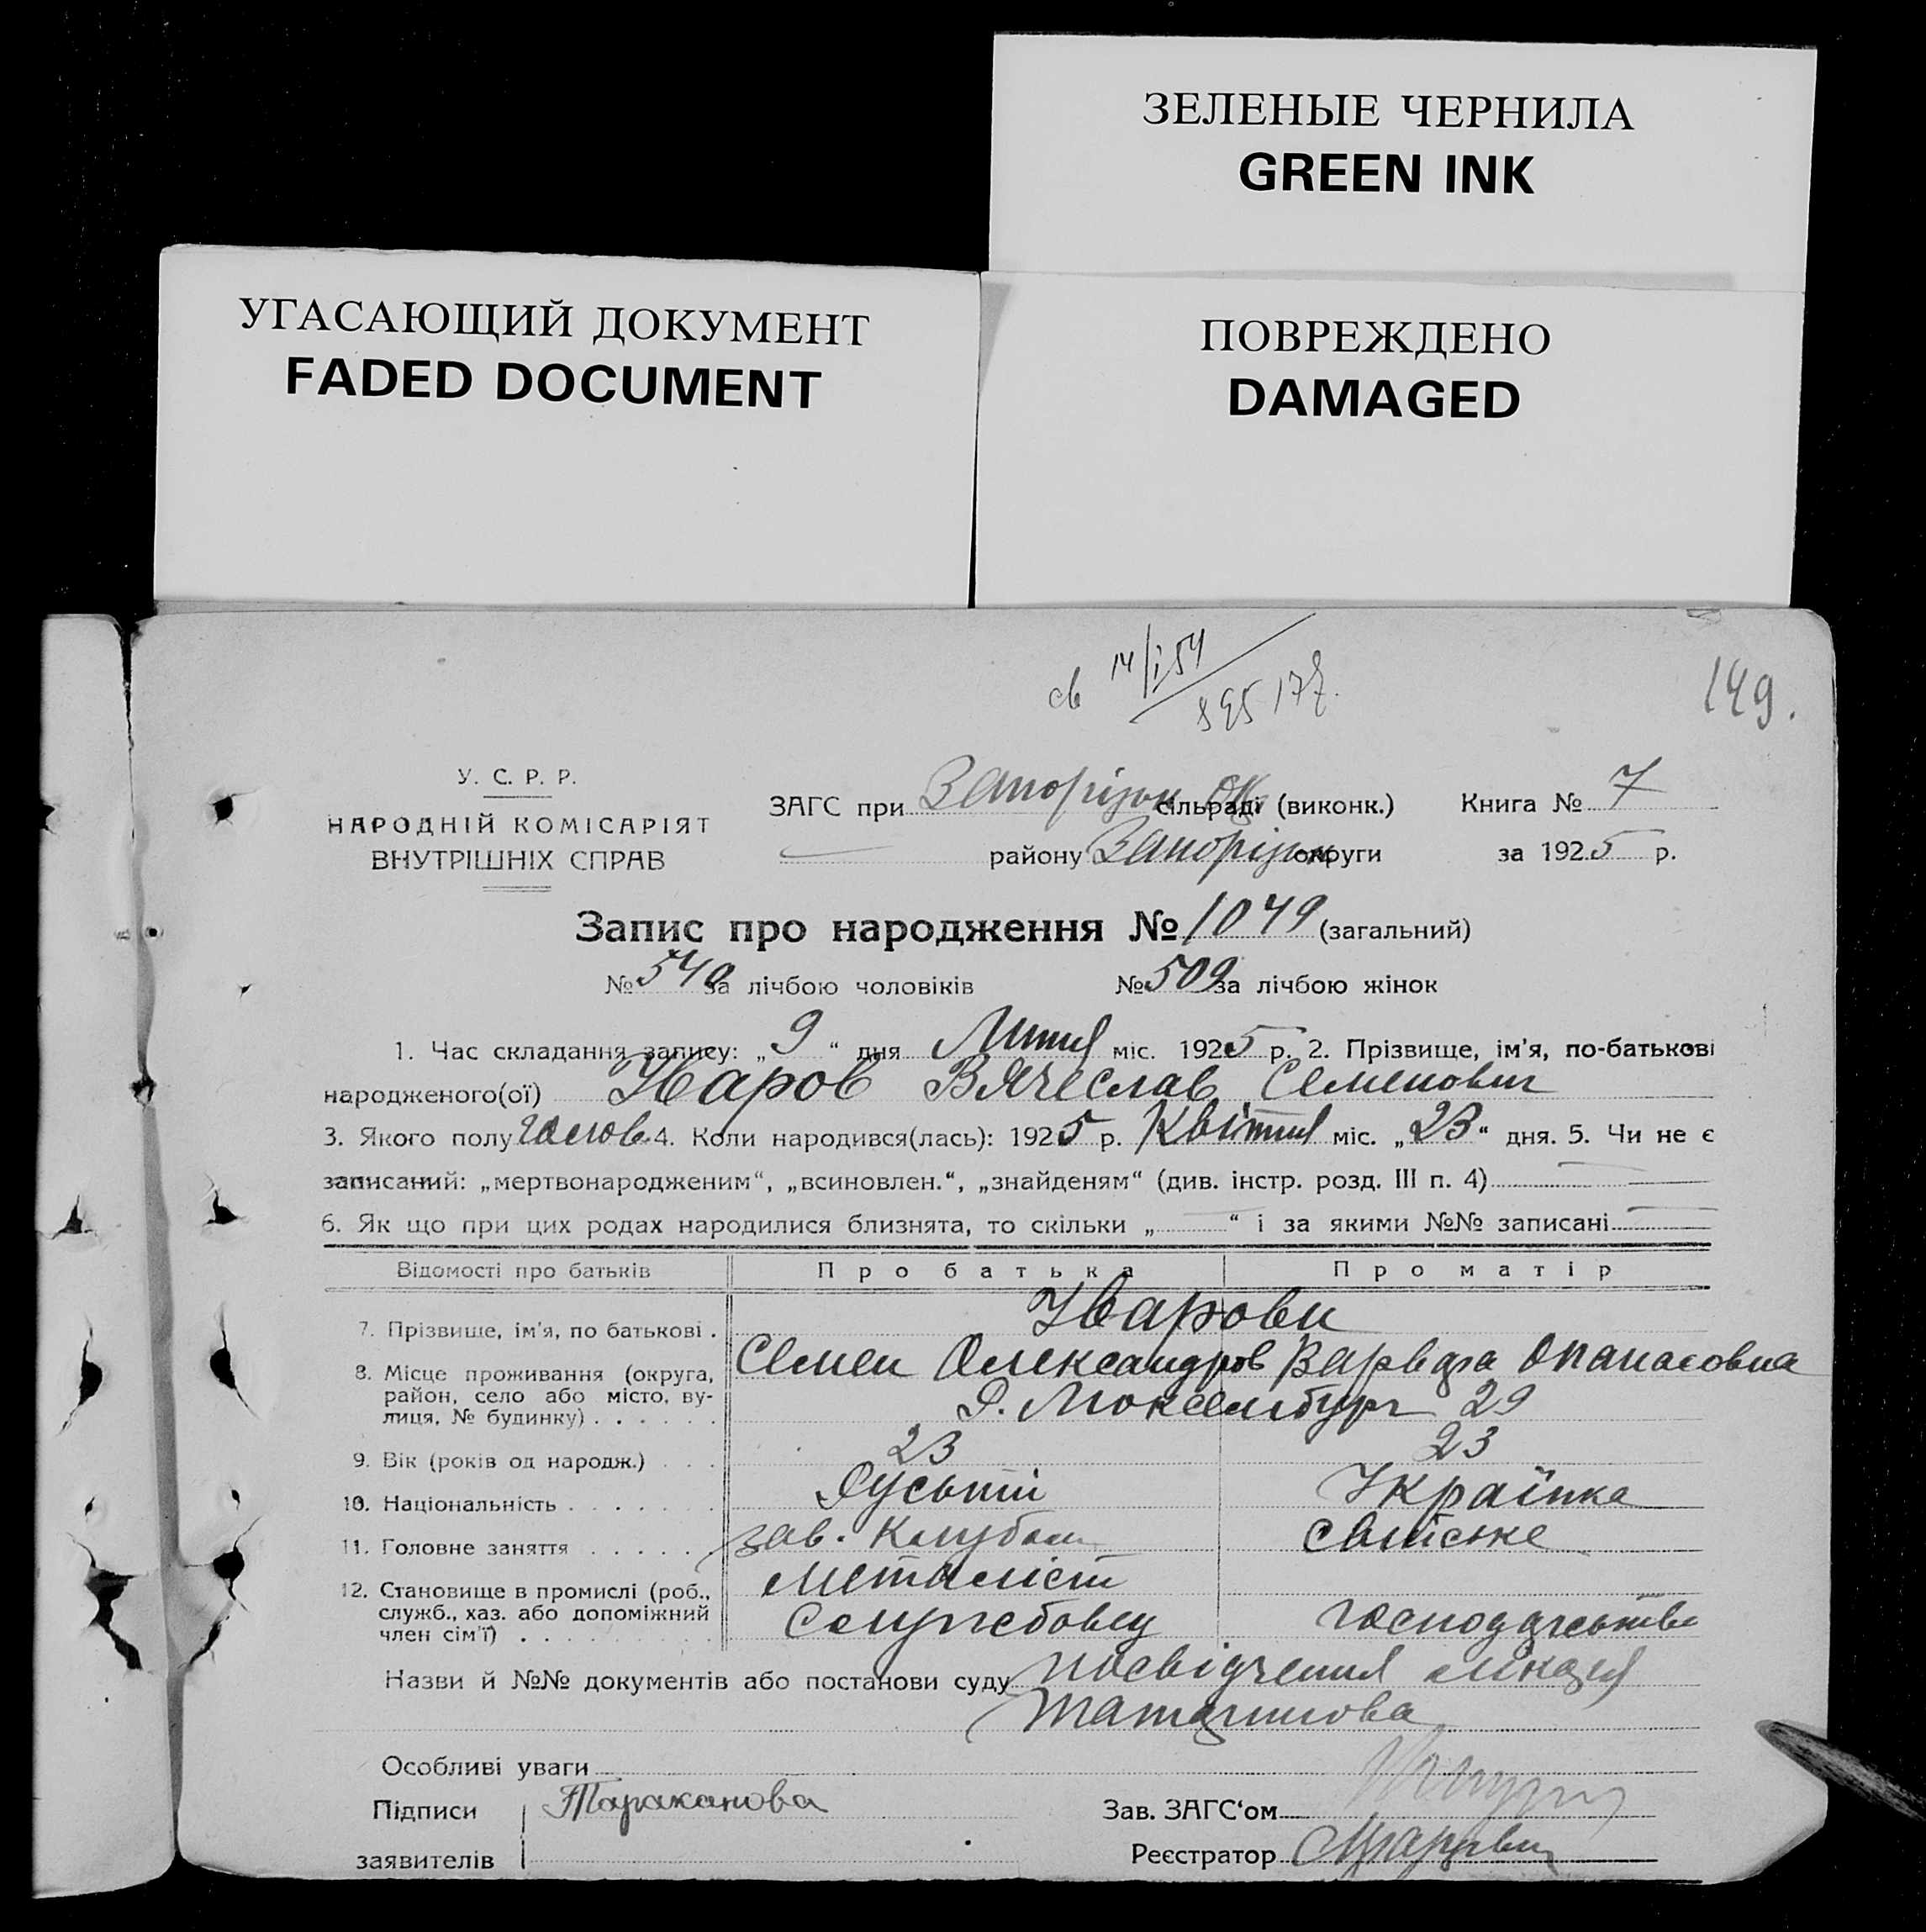 ЗЕЛЕНЫЕ ЧЕРНИЛА
GREEN INK
УГАСАЮЩИЙ ДОКУМЕНТ
FADED DOCUMENT
ПОВРЕЖДЕНО
DAMAGED
св 14/I 54
149.
У. С. Р. Р.
НАРОДНІЙ КОМІСАРІЯТ
ВНУТРІШНІХ СПРАВ
ЗАГС при Запорізьк Ок сільраді (виконк.) Книга № 7
району Запорізьк округи за 1925 р.
Запис про народження № 1049 (загальний)
№ 540 за лічбою чоловіків № 509 за лічбою жінок
1. Час складання запису: „ 9 “ дня Липня міс. 1925 р. 2. Прізвище, ім'я, по-батькові
народженого(ої) Уваров Вячеслав Семенович
3. Якого полу чолов. 4. Коли народився(лась): 1925 р. Квітня міс. „23“ дня. 5. Чи не є
записаний: „мертвонародженим“, „всиновлен.“, „знайденям“ (див. інстр. розд. III п. 4)
6. Як що при цих родах народилися близнята, то скільки „ “ і за якими №№ записані
Відомості про батьків Про батька Про матір
7. Прізвище, ім'я, по батькові . Уварови
Семен Олександров Варвара Опанасовна
8. Місце проживання (округа, район, село або місто, вулиця, № будинку) . . . . . . Р. Люксембург 29
9. Вік (років од народж.) . . . 23 23
10. Національність . . . . . . . Руський Українка
11. Головне заняття . . . . . . зав. Клубом свійське
металіст
12. Становище в промислі (роб., служб., хаз. або допоміжний член сім'ї) . . . . . . . . . Службовец господарьство
Назви й №№ документів або постанови суду посвідчення лікаря
Особливі уваги
Підписи Тараканова Зав. ЗАГС‘ом
заявителів Реєстратор